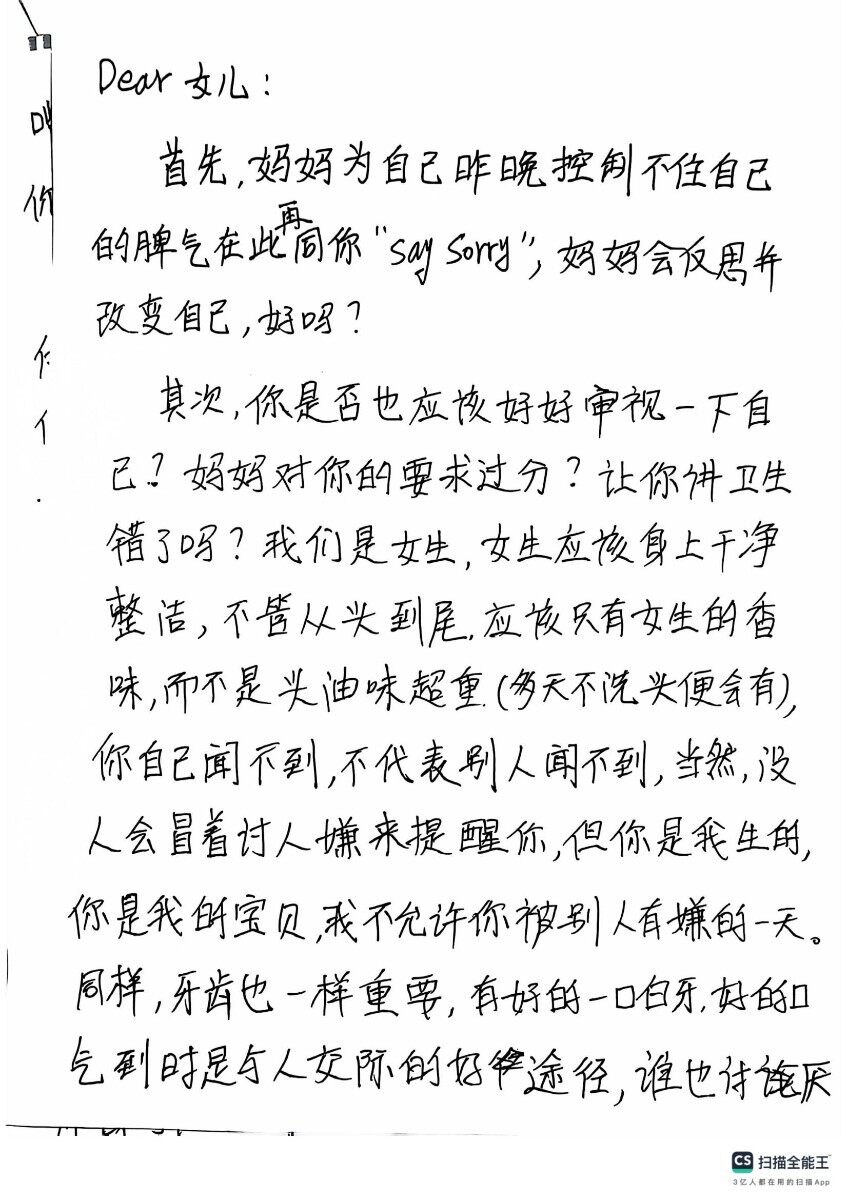 Dear 女儿：
首先，妈妈为自己昨晚控制不住自己
的脾气在此再同你“say sorry”，妈妈会反思并
改变自己，好吗？
其次，你是否也应该好好审视一下自
己？妈妈对你的要求过分？让你讲卫生
错了吗？我们是女生，女生应该身上干净
整洁，不管从头到尾，应该只有女生的香
味，而不是头油味超重（多天不洗头便会有），
你自己闻不到，不代表别人闻不到，当然，没
人会冒着讨人嫌来提醒你，但你是我生的，
你是我的宝贝，我不允许你被别人有嫌的一天。
同样，牙齿也一样重要，有好的一口白牙，好的口
气到时是与人交际的好途径，谁也讨厌
CS 扫描全能王
3亿人都在用的扫描App